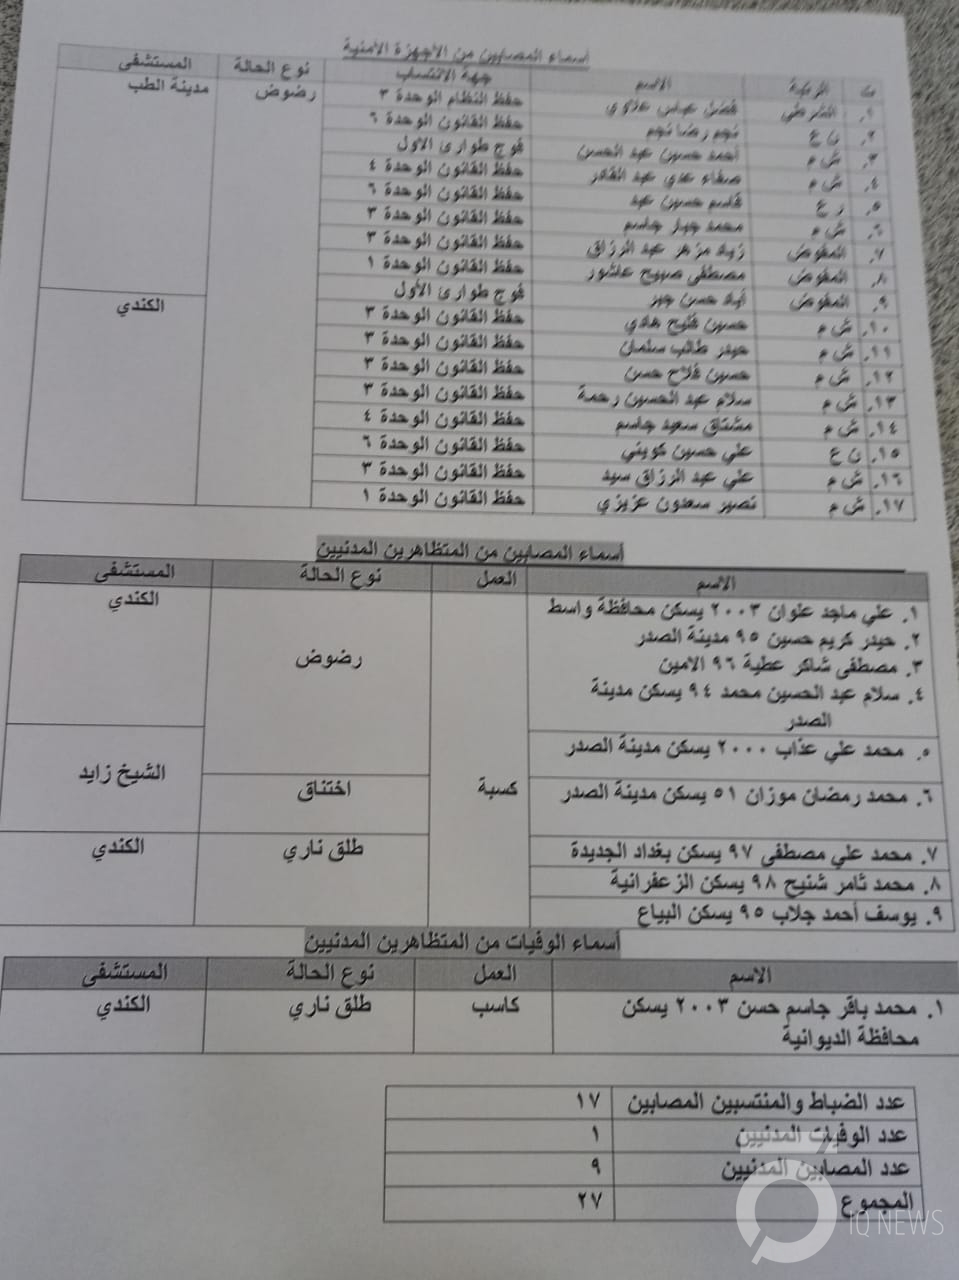 أسماء المصابين من الأجهزة الأمنية
ت الرتبة الاسم جهة الانتساب نوع الحالة المستشفى
١. الشرطي عباس علاوي حفظ النظام الوحدة ٣ رضوض مدينة الطب
٢. ن ع نجم رضا نجم حفظ القانون الوحدة ٦
٣. ش م أحمد حسين عبد الحسن فوج طوارئ الأول
٤. ش م صفاء عدي عبد القادر حفظ القانون الوحدة ٤
٥. ر ع قاسم حسين عبد حفظ القانون الوحدة ٦
٦. ش م محمد جبار جاسم حفظ القانون الوحدة ٣
٧. المفوض زياد مزهر عبد الرزاق حفظ القانون الوحدة ٣
٨. المفوض مصطفى صبيح عاشور حفظ القانون الوحدة ١
٩. المفوض أياد حسن جبر فوج طوارئ الأول الكندي
١٠. ش م حسين فليح هادي حفظ القانون الوحدة ٣
١١. ش م حيدر طالب سلمان حفظ القانون الوحدة ٣
١٢. ش م حسين فلاح حسن حفظ القانون الوحدة ٣
١٣. ش م سلام عبد الحسين رحمة حفظ القانون الوحدة ٣
١٤. ش م مشتاق سعيد جاسم حفظ القانون الوحدة ٤
١٥. ن ع علي حسين كويني حفظ القانون الوحدة ٦
١٦. ش م علي عبد الرزاق سيد حفظ القانون الوحدة ٣
١٧. ش م نصير سعدون عزيزي حفظ القانون الوحدة ١
أسماء المصابين من المتظاهرين المدنيين
الاسم العمل نوع الحالة المستشفى
١. علي ماجد علوان ٢٠٠٣ يسكن محافظة واسط الكندي
٢. حيدر كريم حسين ٩٥ مدينة الصدر
٣. مصطفى شاكر عطية ٩٦ الامين رضوض
٤. سلام عبد الحسين محمد ٩٤ يسكن مدينة
الصدر
٥. محمد علي عذاب ٢٠٠٠ يسكن مدينة الصدر الشيخ زايد
٦. محمد رمضان موزان ٥١ يسكن مدينة الصدر كسبة اختناق
٧. محمد علي مصطفى ٩٧ يسكن بغداد الجديدة طلق ناري الكندي
٨. محمد ثامر شنيح ٩٨ يسكن الزعفرانية
٩. يوسف أحمد جلاب ٩٥ يسكن البياع
أسماء الوفيات من المتظاهرين المدنيين
الاسم العمل نوع الحالة المستشفى
١. محمد باقر جاسم حسن ٢٠٠٣ يسكن كاسب طلق ناري الكندي
محافظة الديوانية
عدد الضباط والمنتسبين المصابين ١٧
عدد الوفيات المدنيين ١
عدد المصابين المدنيين ٩
المجموع ٢٧
IQ NEWS